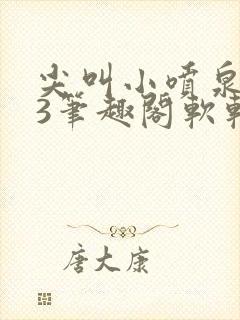 尖叫小喷泉
3笔趣阁软
唐大康